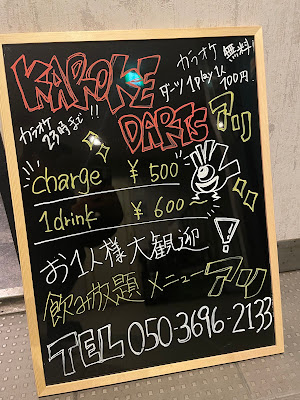 KAROKE
カラオケ 無料!
ダーツ 1play 1人 100円!
カラオケ 23時まで!!
DARTS アリ
charge ¥500
1drink ¥600
お1人様大歓迎!
飲み放題メニューアリ
TEL 050-3696-2133